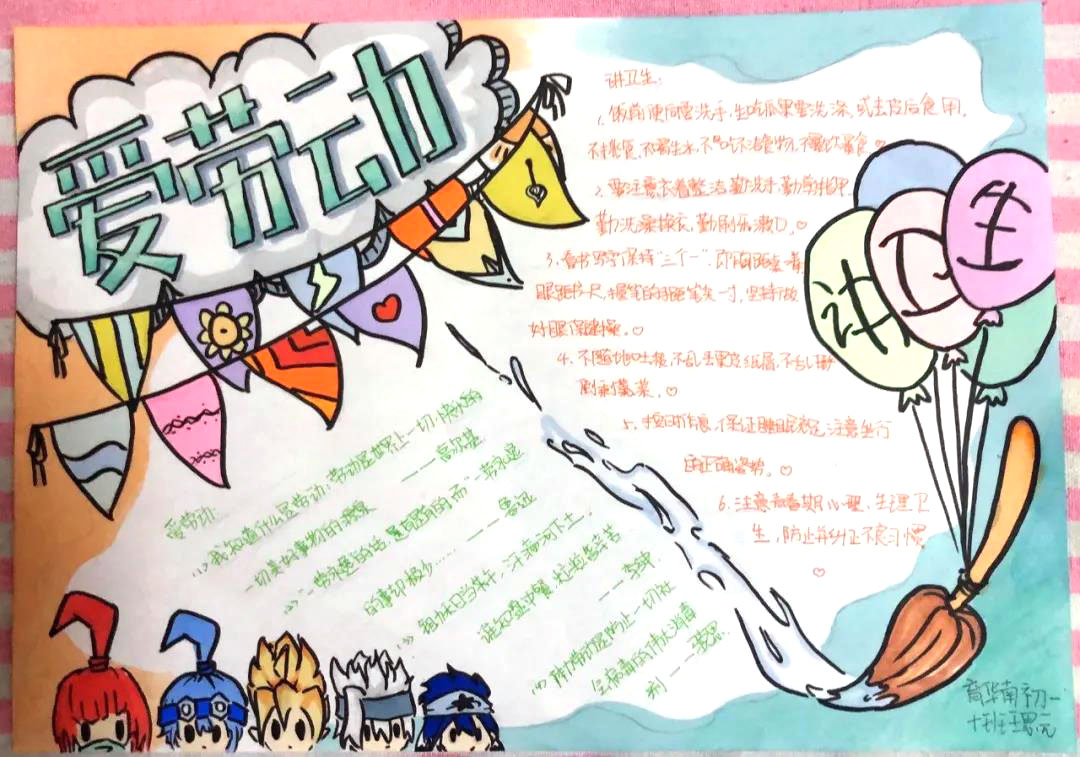 爱劳动
讲卫生
讲卫生:
1、饭前便后要洗手,生吃瓜果要洗涤,或去皮后食用。
不挑食,不喝生水,不吃不洁食物,不暴饮暴食♡
2、要注意衣着整洁,勤洗手,勤剪指甲
勤洗澡换衣,勤刷牙漱口。♡
3、看书写字保持"三个一".
眼距书一尺,握笔的手距笔尖一寸,坚持做
好眼保健操。♡
4、不随地吐痰,不乱丢果皮纸屑,不乱
倒剩饭菜。♡
5、按时作息,保证睡眠充足,注意坐行
的正确姿势。♡
6、注意青春期心理、生理卫
生,防止并纠正不良习惯
♡
爱劳动:
(1)我知道什么是劳动:劳动是世界上一切欢乐的
一切美好事物的源泉 ——高尔基
(2)
的事却极少…… ——鲁迅
(3) 锄禾日当午,汗滴禾下土,
谁知盘中餐 粒粒皆辛苦
——李绅
(4)
会病毒的伟大消毒
剂 ——
育华南初一
十班